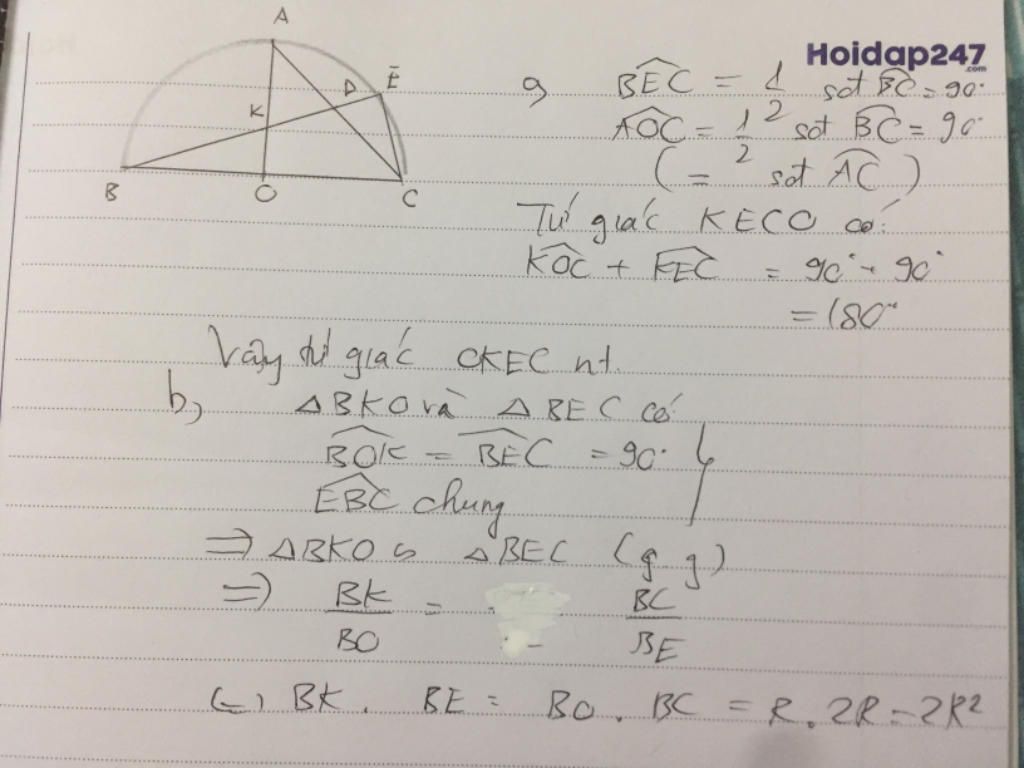 A
Hoidap247
.com
D
E
K
B
O
C
a) BEC = 1/2 sđ BC = 90°
AOC = 1/2 sđ BC = 90°
( = sđ AC )
Tứ giác KECO có:
KOC + KEC = 90° + 90°
= 180°
Vậy tứ giác OKEC nt.
b, △BKO và △BEC có
BOK = BEC = 90°
EBC chung
⇒ △BKO ᔕ △BEC (g.g)
⇒ BK/BO = BC/BE
(=) BK . BE = BO . BC = R . 2R = 2R²